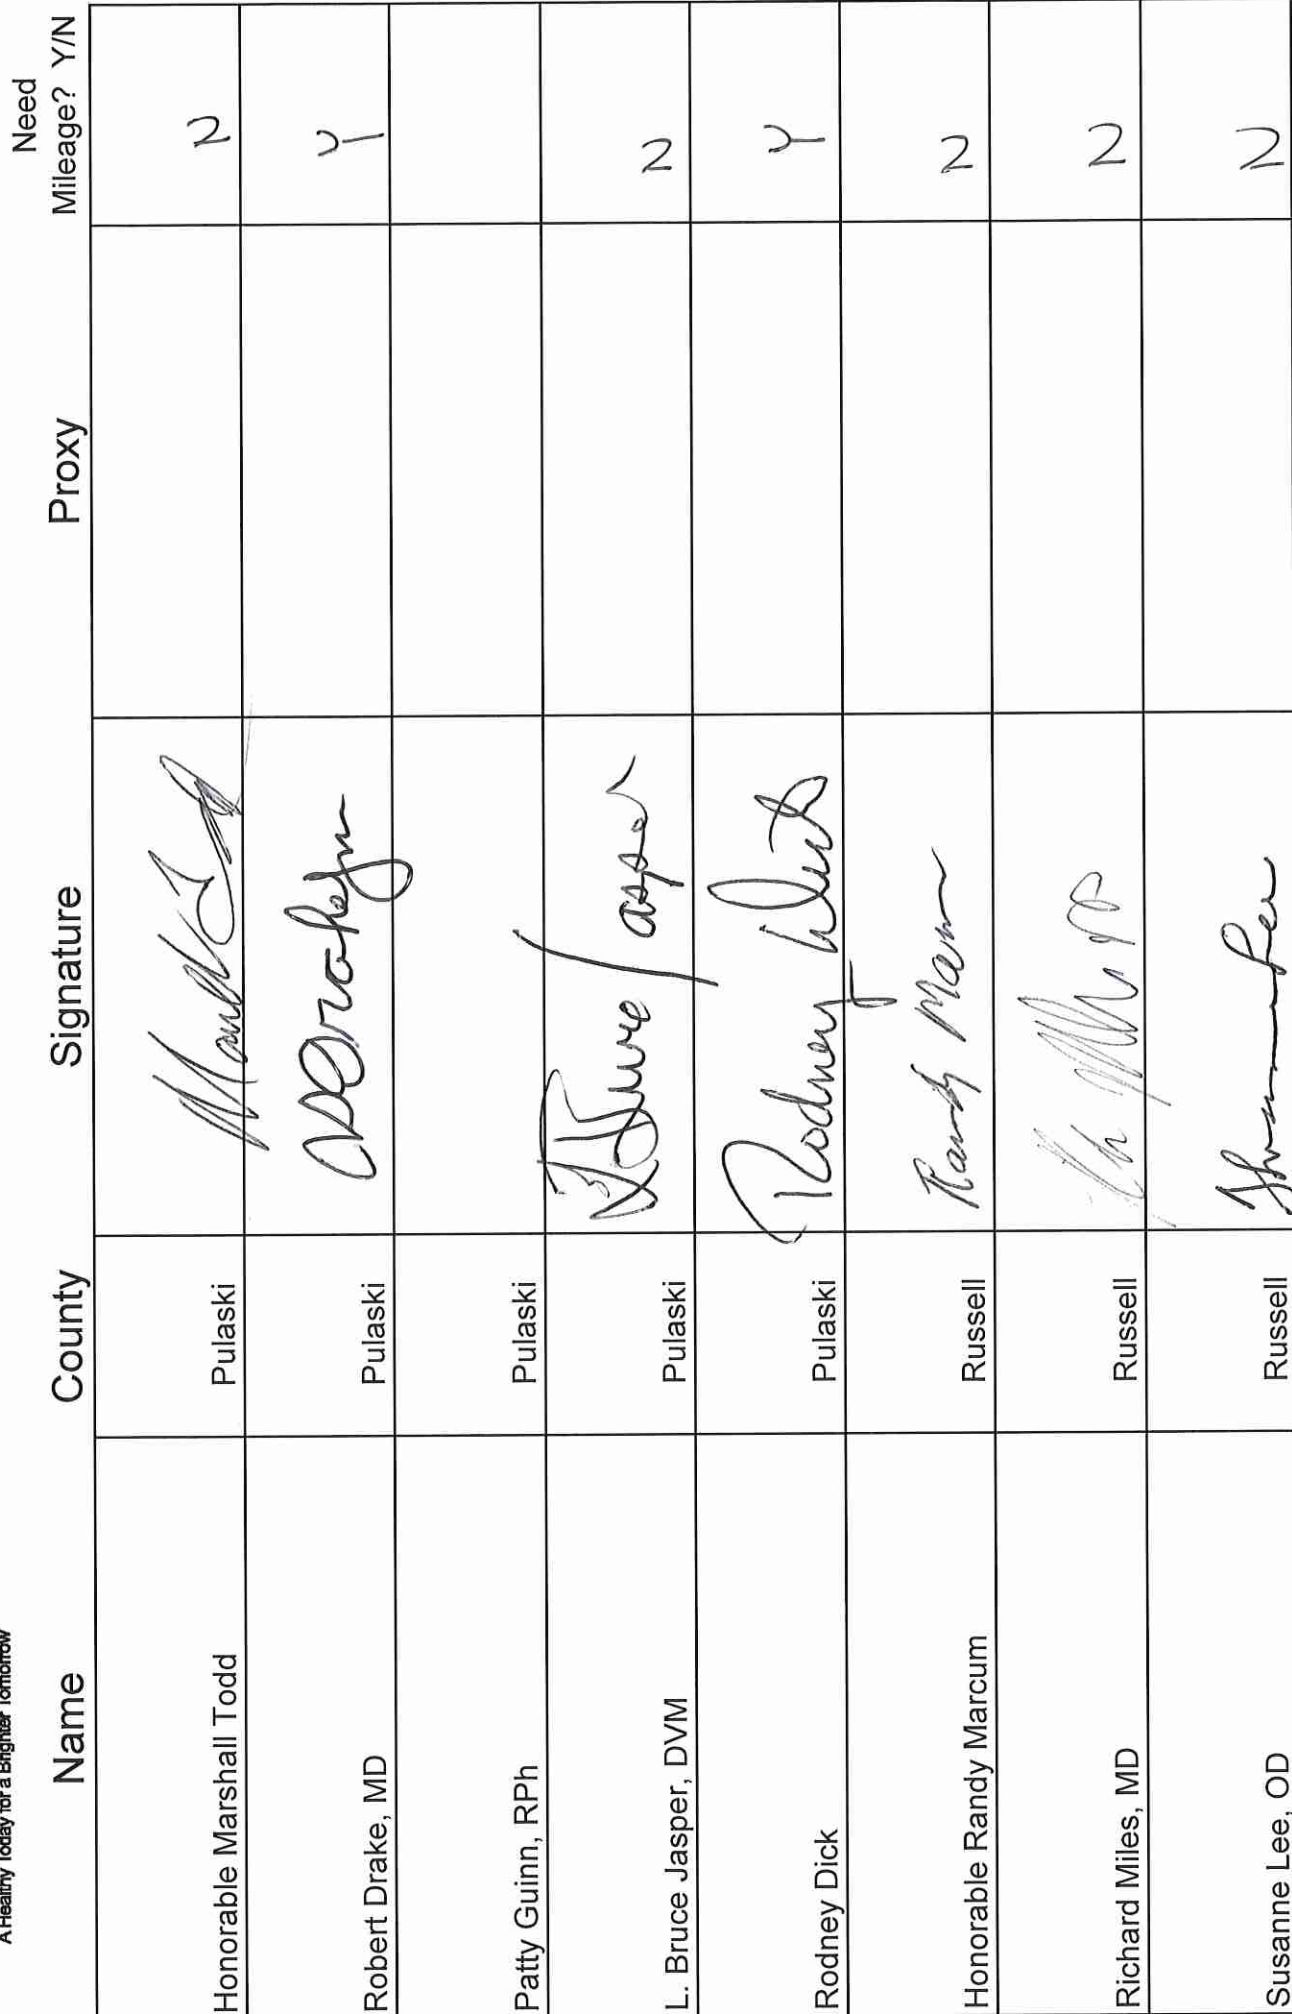 A Healthy Today for a Brighter Tomorrow
Name County Signature Proxy Need Mileage? Y/N
Honorable Marshall Todd Pulaski N
Robert Drake, MD Pulaski Y
Patty Guinn, RPh Pulaski
L. Bruce Jasper, DVM Pulaski Bruce Jasper N
Rodney Dick Pulaski Rodney Dick Y
Honorable Randy Marcum Russell Randy N
Richard Miles, MD Russell N
Susanne Lee, OD Russell Lee N